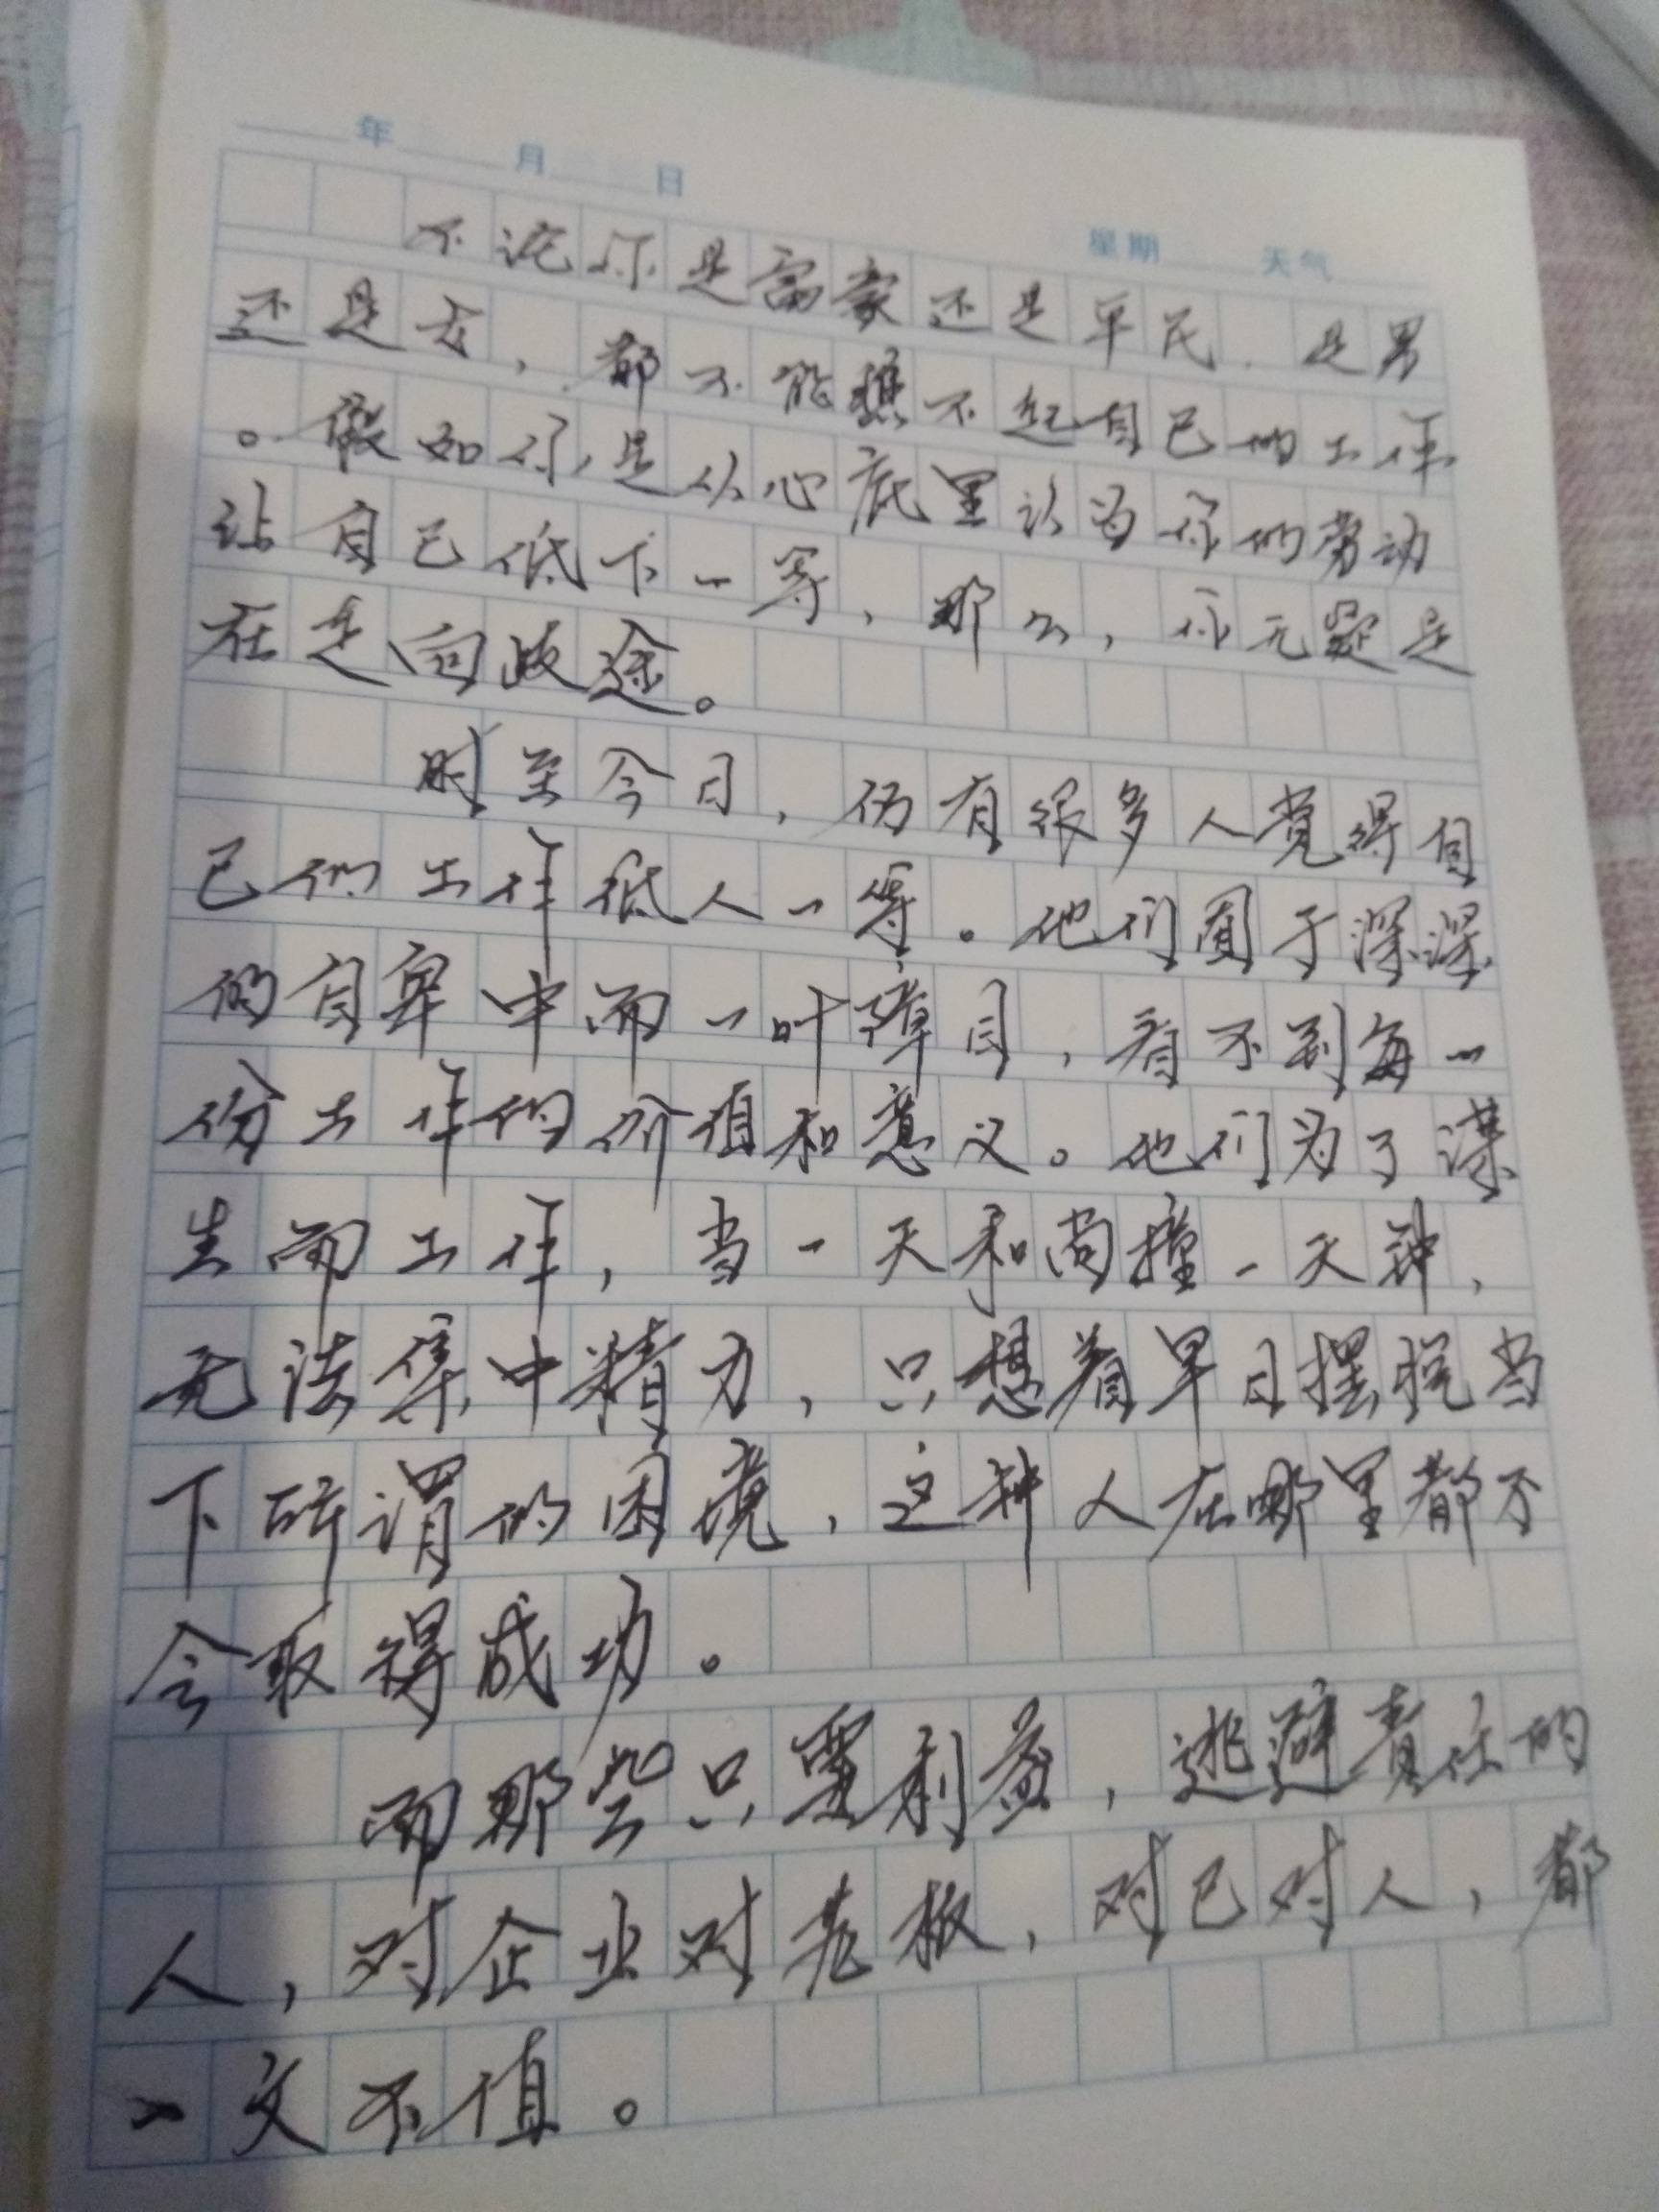 年 月 日
星期 天气
不论你是富豪还是平民，是男
还是女，都不能瞧不起自己的工作
。假如你是从心底里认为你的劳动
让自己低下一等，那么，你无疑是
在走向歧途。
时至今日，仍有很多人觉得自
己的工作低人一等。他们囿于深深
的自卑中而一叶障目，看不到每一
份工作的价值和意义。他们为了谋
生而工作，当一天和尚撞一天钟，
无法集中精力，只想着早日摆脱当
下所谓的困境，这种人在哪里都不
会取得成功。
而那些只重利益，逃避责任的
人，对企业对老板，对己对人，都
一文不值。